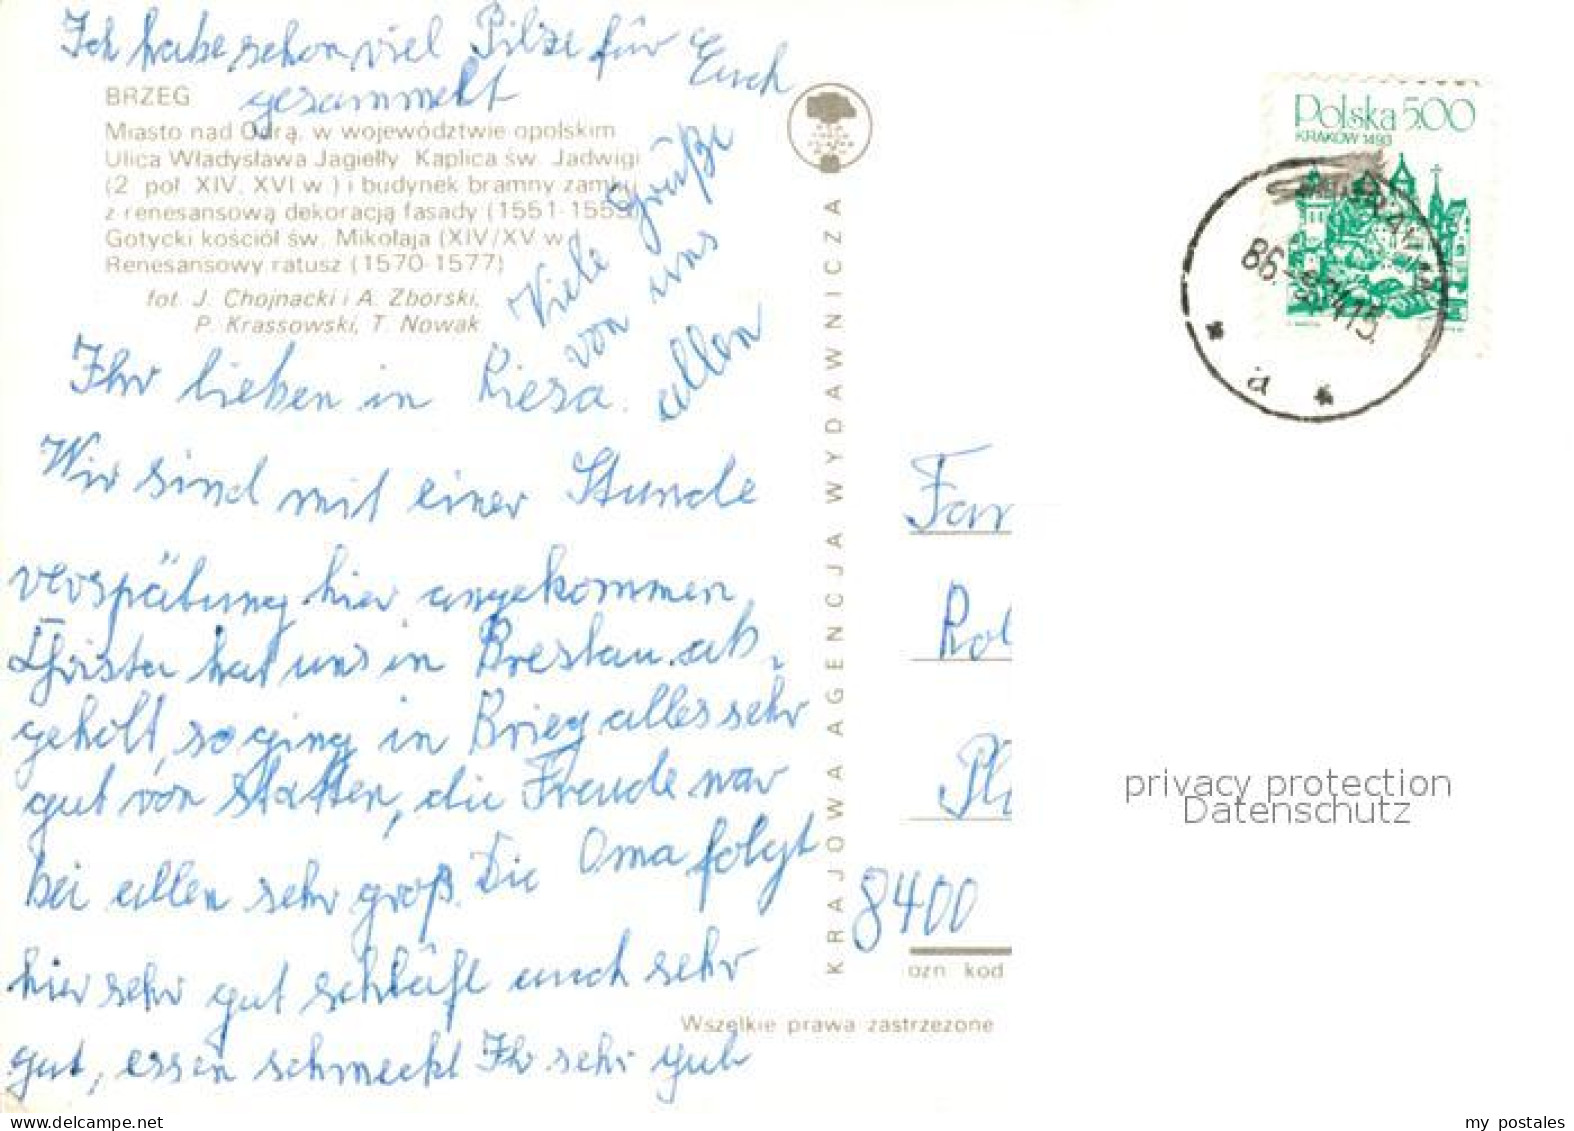 Ich habe schon viel Pilze für Euch
gesammelt
BRZEG
Miasto nad Odrą, w województwie opolskim
Ulica Władysława Jagiełły. Kaplica św. Jadwigi
(2 poł. XIV, XVI w.) i budynek bramny zamku
z renesansową dekoracją fasady (1551-1553)
Gotycki kościół św. Mikołaja (XIV/XV w.)
Renesansowy ratusz (1570-1577)
fot. J. Chojnacki i A. Zborski,
P. Krassowski, T. Nowak
Viele Grüße
von uns
allen
Ihr lieben in Riesa.
Wir sind mit einer Stunde
verspätung hier angekommen,
Christa hat uns in Breslau ab-
geholt, so ging in Brieg alles sehr
gut von Statten, die Freude war
bei allen sehr groß. Die Oma folgt
hier sehr gut schläft auch sehr
gut, essen schmeckt Ihr sehr gut
KRAJOWA AGENCJA WYDAWNICZA
Polska 5.00
KRAKÓW 1493
86
a
Fam
Rol
Pl
8400
ozn. kod
Wszelkie prawa zastrzeżone
privacy protection
Datenschutz
my postales
www.delcampe.net